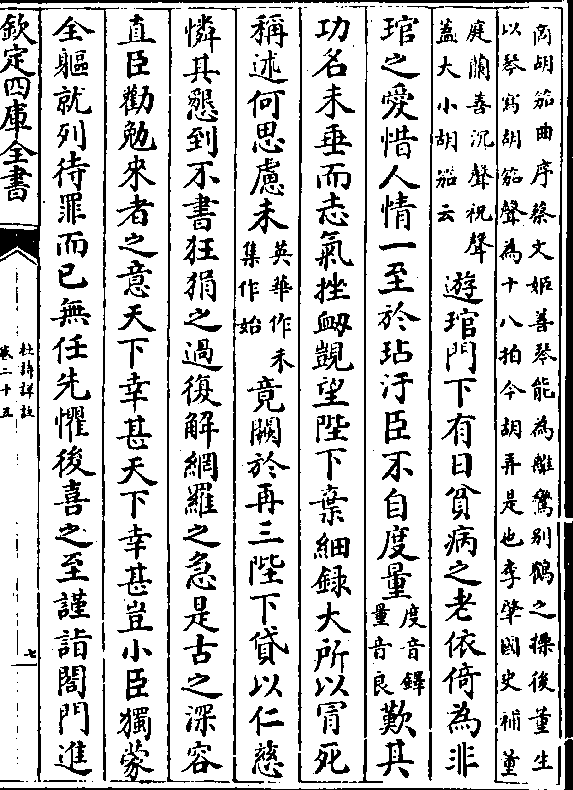 商胡笳曲序蔡文姬善琴能為離鸞别鶴之操後董生
以琴寫胡笳聲為十八拍今胡弄是也李肇國史補董
庭蘭善沉聲祝聲
蓋大小胡笳云
遊琯門下有日貧病之老依倚為非
琯之愛惜人情一至於玷汙臣不自度量
度音鐸
量音良
歎其
功名未垂而志氣挫衂覬望陛下棄細録大所以冒死
稱述何思慮未
英華作未
集作始
竟闕於再三陛下貸以仁慈
憐其懇到不書狂狷之過復解網羅之急是古之深容
直臣勸勉來者之意天下幸甚天下幸甚豈小臣獨蒙
全軀就列待罪而已無任先懼後喜之至謹詣閤門進
欽定四庫全書
杜詩詳註
卷二十五
七